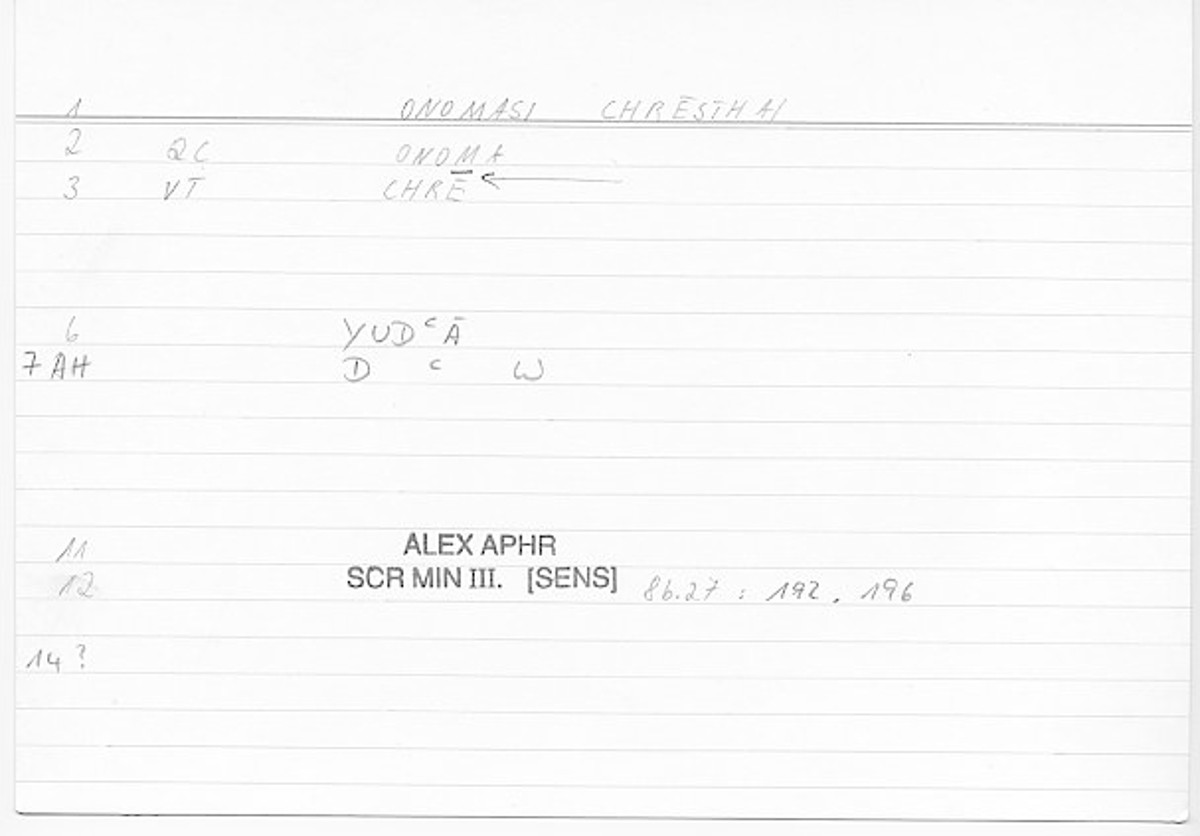 1 ONOMASI CHRĒSTHAI
2 QC ONOMA
3 VT CHRĒ ←
6 YUDᶜĀ
7 AH D ᶜ W
11 ALEX APHR
12 SCR MIN III. [SENS] 86.27 : 192, 196
14 ?